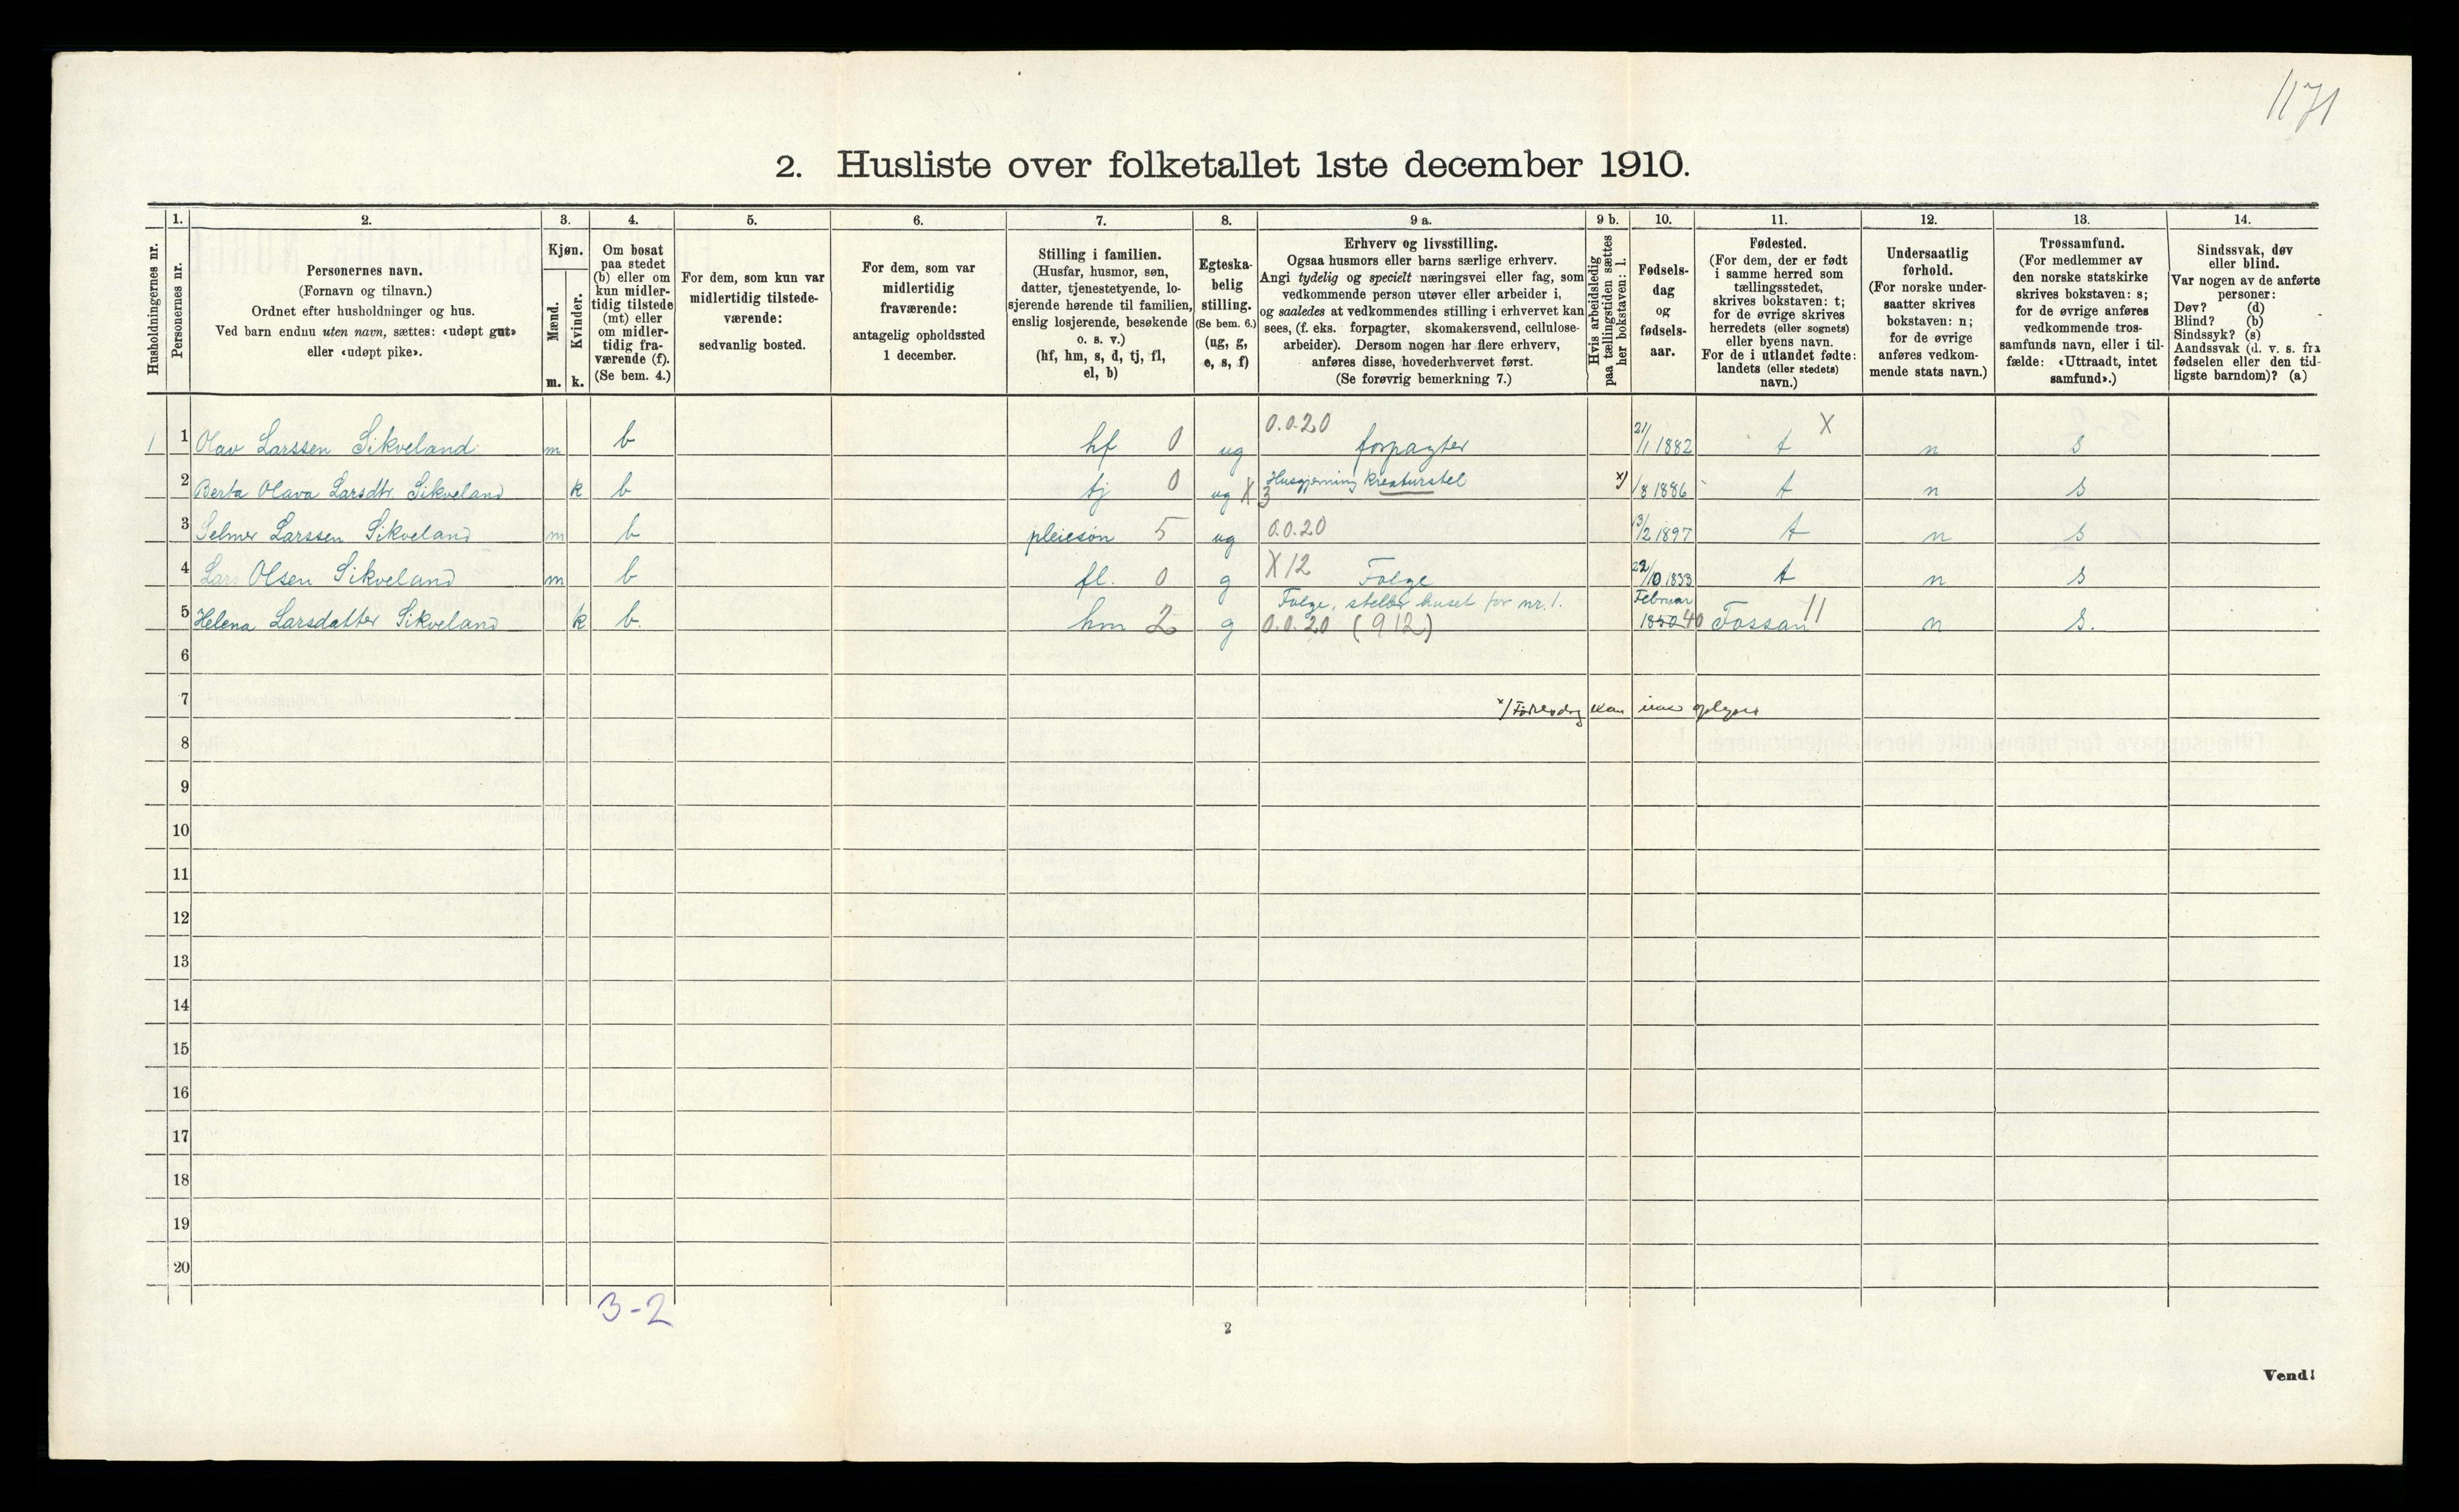 1171
2. Husliste over folketallet 1ste december 1910.
1. 2. 3. 4. 5. 6. 7. 8. 9 a. 9 b. 10. 11. 12. 13. 14.
Husholdningernes nr.
Personernes nr.
Personernes navn.
(Fornavn og tilnavn.)
Ordnet efter husholdninger og hus.
Ved barn endnu uten navn, sættes: «udøpt gut»
eller «udøpt pike».
Kjøn.
Mænd.
Kvinder.
m. k.
Om bosat
paa stedet
(b) eller om
kun midler-
tidig tilstede
(mt) eller
om midler-
tidig fra-
værende (f).
(Se bem. 4.)
For dem, som kun var
midlertidig tilstede-
værende:
sedvanlig bosted.
For dem, som var
midlertidig
fraværende:
antagelig opholdssted
1 december.
Stilling i familien.
(Husfar, husmor, søn,
datter, tjenestetyende, lo-
sjerende hørende til familien,
enslig losjerende, besøkende
o. s. v.)
(hf, hm, s, d, tj, fl,
el, b)
Egteska-
belig
stilling.
(Se bem. 6.)
(ug, g,
e, s, f)
Erhverv og livsstilling.
Ogsaa husmors eller barns særlige erhverv.
Angi tydelig og specielt næringsvei eller fag, som
vedkommende person utøver eller arbeider i,
og saaledes at vedkommendes stilling i erhvervet kan
sees, (f. eks. forpagter, skomakersvend, cellulose-
arbeider). Dersom nogen har flere erhverv,
anføres disse, hovederhvervet først.
(Se forøvrig bemerkning 7.)
Hvis arbeidsledig
paa tællingstiden sættes
her bokstaven: l.
Fødsels-
dag
og
fødsels-
aar.
Fødested.
(For dem, der er født
i samme herred som
tællingsstedet,
skrives bokstaven: t;
for de øvrige skrives
herredets (eller sognets)
eller byens navn.
For de i utlandet fødte:
landets (eller stedets)
navn.)
Undersaatlig
forhold.
(For norske under-
saatter skrives
bokstaven: n;
for de øvrige
anføres vedkom-
mende stats navn.)
Trossamfund.
(For medlemmer av
den norske statskirke
skrives bokstaven: s;
for de øvrige anføres
vedkommende tros-
samfunds navn, eller i til-
fælde: «Uttraadt, intet
samfund».)
Sindssvak, døv
eller blind.
Var nogen av de anførte
personer:
Døv? (d)
Blind? (b)
Sindssyk? (s)
Aandssvak (d. v. s. fra
fødselen eller den tid-
ligste barndom)? (a)
1 1 Olav Larssen Sikveland m b hf 0 ug 0.0.20 forpagter 21/1 1882 t X n s
2 Berta Olava Larsdtr. Sikveland k b tj 0 ug X 3 Husgjerning kreaturstel x) /8 1886 t n s
3 Selmer Larssen Sikveland m b pleiesøn 5 ug 0.0.20 13/2 1897 t n s
4 Lars Olsen Sikveland m b fl. 0 g X12 Folge 22/10 1833 t n s
5 Helena Larsdatter Sikveland k b. hm 2 g Folge, steller huset for nr. 1. 0.0.20 (912) Februar 1850 40 Fossan 11 n s.
6
7 x) Fødselsdag kan ikke oplyses
8
9
10
11
12
13
14
15
16
17
18
19
20
3-2
2
Vend!